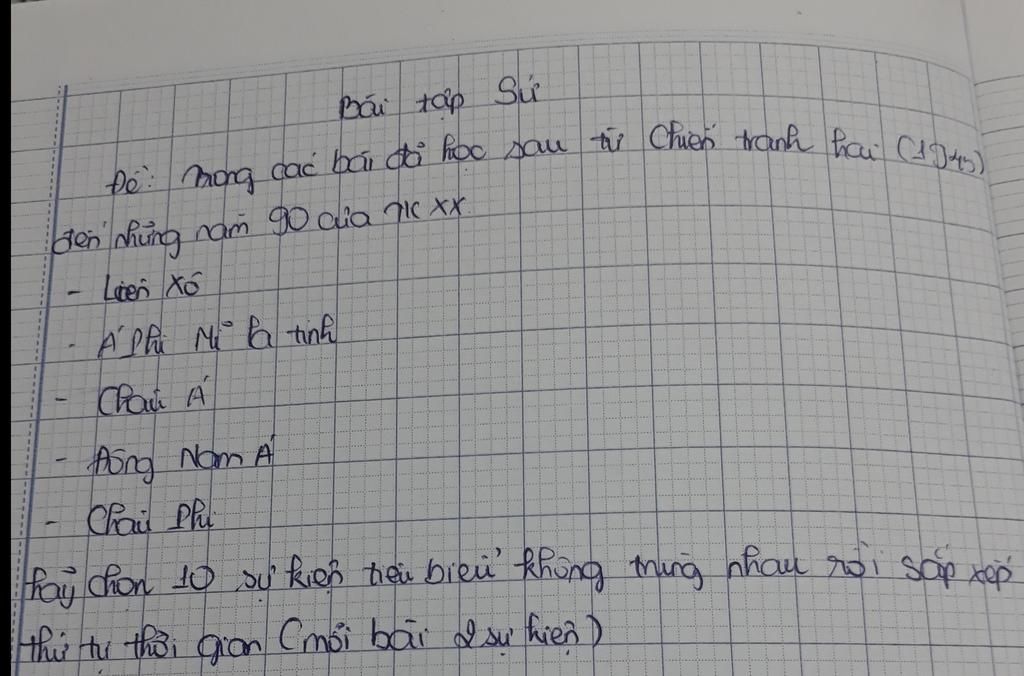 Bài tập Sử
Đề: Trong các bài đã học sau từ Chiến tranh hai (1945)
đến những năm 90 của TK XX.
- Liên Xô
- Á Phi Mĩ la tinh
- Châu Á
- Đông Nam Á
- Châu Phi
hãy chọn 10 sự kiện tiêu biểu không trùng nhau rồi sắp xếp
thứ tự thời gian (mỗi bài 2 sự kiện)